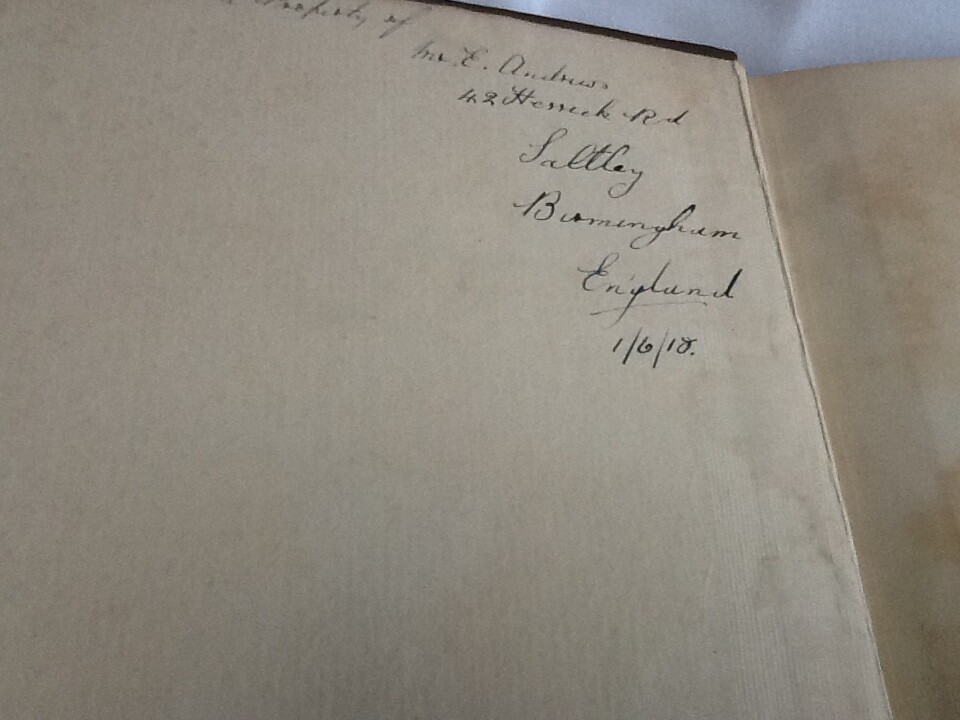 Property of
Mr. E. Andrews
42 Herrick Rd
Saltley
Birmingham
England
1/6/18.